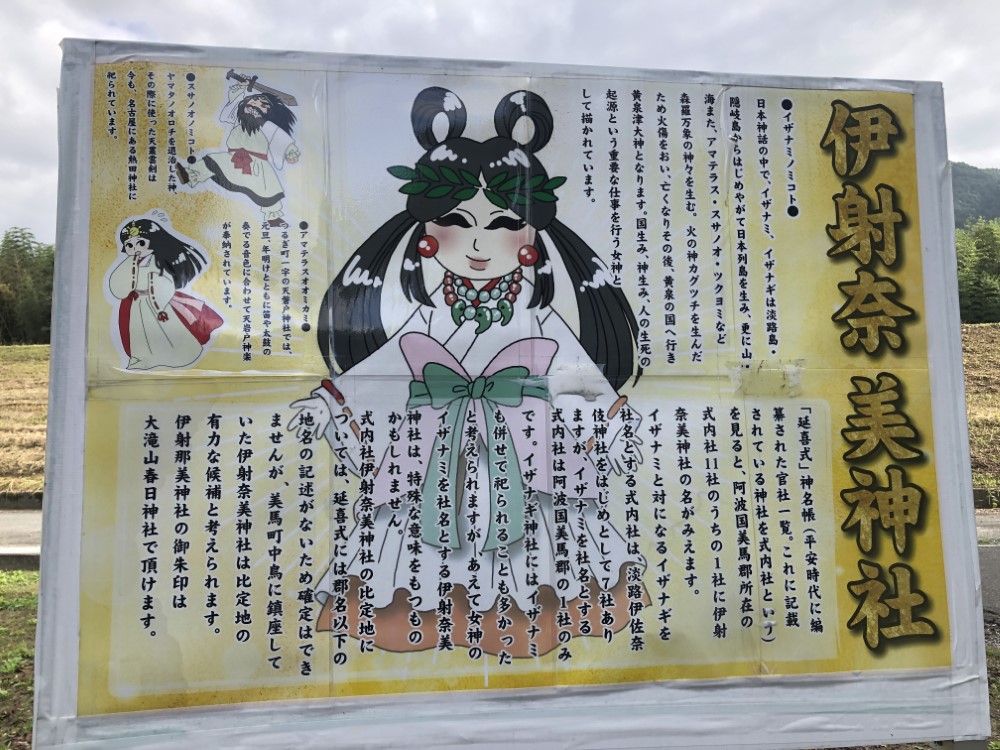 伊射奈美神社
●イザナミノミコト●
日本神話の中で、イザナミ、イザナギは淡路島・
隠岐島からはじめやがて日本列島を生み、更に山・
海また、アマテラス・スサノオ・ツクヨミなど
森羅万象の神々を生む。火の神カグツチを生んだ
ため火傷をおい、亡くなりその後、黄泉の国へ行き
黄泉津大神となります。国生み、神生み、人の生死の
起源という重要な仕事を行う女神と
して描かれています。
●スサノオノミコト●
ヤマタノオロチを退治した神、
その際に使った天叢雲剣は
今も、名古屋にある熱田神社に
祀られています。
●アマテラスオオミカミ●
つるぎ町一宇の天磐戸神社では、
元旦、年明けとともに笛や太鼓の
奏でる音色に合わせて天岩戸神楽
が奉納されています。
「延喜式」神名帳（平安時代に編
纂された官社一覧。これに記載
されている神社を式内社という）
を見ると、阿波国美馬郡所在の
式内社11社のうちの1社に伊射
奈美神社の名がみえます。
イザナミと対になるイザナギを
社名とする式内社は、淡路伊佐奈
伎神社をはじめとして7社あり
ますが、イザナミを社名とする
式内社は阿波国美馬郡の1社のみ
です。イザナギ神社にはイザナミ
も併せて祀られることも多かった
と考えられますが、あえて女神の
イザナミを社名とする伊射奈美
神社は、特殊な意味をもつもの
かもしれません。
式内社伊射奈美神社の比定地に
ついては、延喜式には郡名以下の
地名の記述がないため確定はでき
ませんが、美馬町中鳥に鎮座して
いた伊射奈美神社は比定地の
有力な候補と考えられます。
伊射那美神社の御朱印は
大滝山春日神社で頂けます。